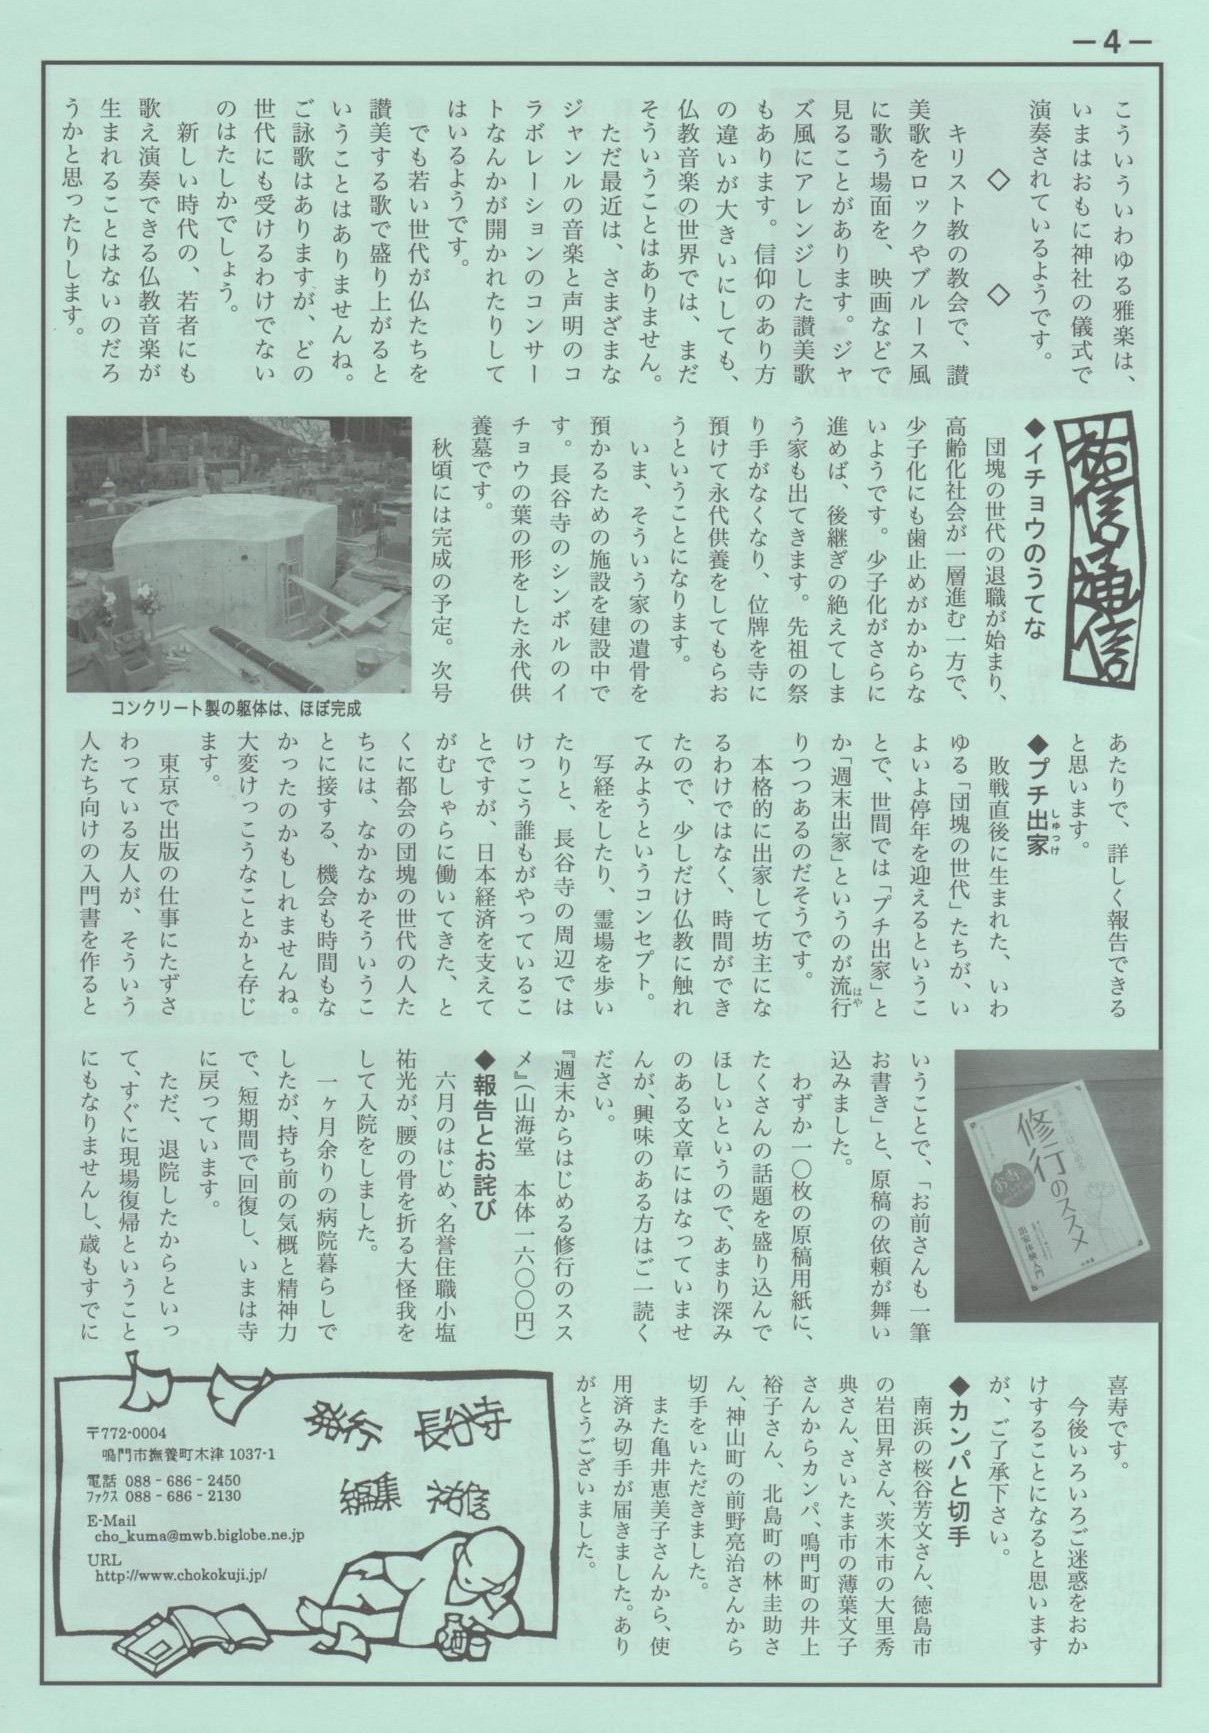 －4－
こういういわゆる雅楽は、
いまはおもに神社の儀式で
演奏されているようです。
◇　　◇
キリスト教の教会で、讃
美歌をロックやブルース風
に歌う場面を、映画などで
見ることがあります。ジャ
ズ風にアレンジした讃美歌
もあります。信仰のあり方
の違いが大きいにしても、
仏教音楽の世界では、まだ
そういうことはありません。
ただ最近は、さまざまな
ジャンルの音楽と声明のコ
ラボレーションのコンサー
トなんかが開かれたりして
はいるようです。
でも若い世代が仏たちを
讃美する歌で盛り上がると
いうことはありませんね。
ご詠歌はありますが、どの
世代にも受けるわけでない
のはたしかでしょう。
新しい時代の、若者にも
歌え演奏できる仏教音楽が
生まれることはないのだろ
うかと思ったりします。
祐信通信
◆イチョウのうてな
団塊の世代の退職が始まり、
高齢化社会が一層進む一方で、
少子化にも歯止めがかからな
いようです。少子化がさらに
進めば、後継ぎの絶えてしま
う家も出てきます。先祖の祭
り手がなくなり、位牌を寺に
預けて永代供養をしてもらお
うということになります。
いま、そういう家の遺骨を
預かるための施設を建設中で
す。長谷寺のシンボルのイ
チョウの葉の形をした永代供
養墓です。
秋頃には完成の予定。次号
コンクリート製の躯体は、ほぼ完成
あたりで、詳しく報告できる
と思います。
◆プチ出家
しゅっけ
敗戦直後に生まれた、いわ
ゆる「団塊の世代」たちが、い
よいよ停年を迎えるというこ
とで、世間では「プチ出家」と
か「週末出家」というのが流行
はや
りつつあるのだそうです。
本格的に出家して坊主にな
るわけではなく、時間ができ
たので、少しだけ仏教に触れ
てみようというコンセプト。
写経をしたり、霊場を歩い
たりと、長谷寺の周辺では
けっこう誰もがやっているこ
とですが、日本経済を支えて
がむしゃらに働いてきた、と
くに都会の団塊の世代の人た
ちには、なかなかそういうこ
とに接する、機会も時間もな
かったのかもしれませんね。
大変けっこうなことかと存じ
ます。
東京で出版の仕事にたずさ
わっている友人が、そういう
人たち向けの入門書を作ると
修行のススメ
出家体験入門
いうことで、「お前さんも一筆
お書き」と、原稿の依頼が舞い
込みました。
わずか一〇枚の原稿用紙に、
たくさんの話題を盛り込んで
ほしいというので、あまり深み
のある文章にはなっていませ
んが、興味のある方はご一読く
ださい。
『週末からはじめる修行のスス
メ』（山海堂　本体一六〇〇円）
◆報告とお詫び
六月のはじめ、名誉住職小塩
祐光が、腰の骨を折る大怪我を
して入院をしました。
一ヶ月余りの病院暮らしで
したが、持ち前の気概と精神力
で、短期間で回復し、いまは寺
に戻っています。
ただ、退院したからといっ
て、すぐに現場復帰ということ
にもなりませんし、歳もすでに
喜寿です。
今後いろいろご迷惑をおか
けすることになると思います
が、ご了承下さい。
◆カンパと切手
南浜の桜谷芳文さん、徳島市
の岩田昇さん、茨木市の大里秀
典さん、さいたま市の薄葉文子
さんからカンパ、鳴門町の井上
裕子さん、北島町の林圭助さ
ん、神山町の前野亮治さんから
切手をいただきました。
また亀井恵美子さんから、使
用済み切手が届きました。あり
がとうございました。
発行 長谷寺
編集 祐信
〒772-0004
鳴門市撫養町木津 1037-1
電話 088－686－2450
ファクス 088－686－2130
E-Mail
cho_kuma@mwb.biglobe.ne.jp
URL
http://www.chokokuji.jp/
酒